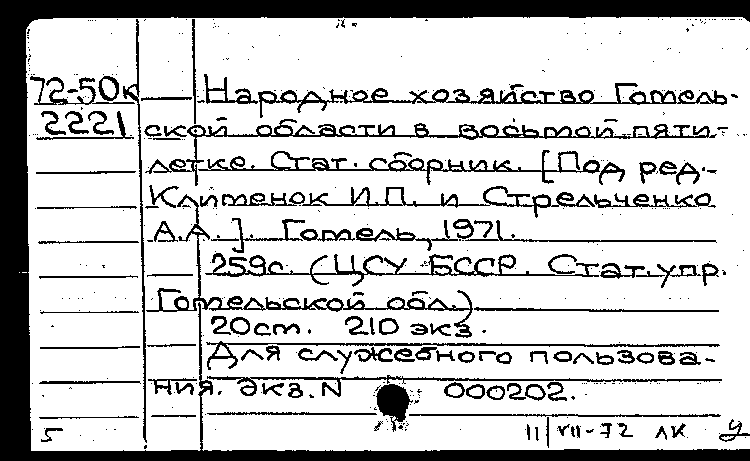 72-50к Народное хозяйство Гомель-
2221 ской области в восьмой пяти-
летке. Стат. сборник. [Под ред.
Клименок И.П. и Стрельченко
А.А.]. Гомель, 1971.
259с. (ЦСУ БССР. Стат. упр.
Гомельской обл.)
20см. 210 экз.
Для служебного пользова-
ния. Экз. N 000202.
5 11/VII-72 ЛК